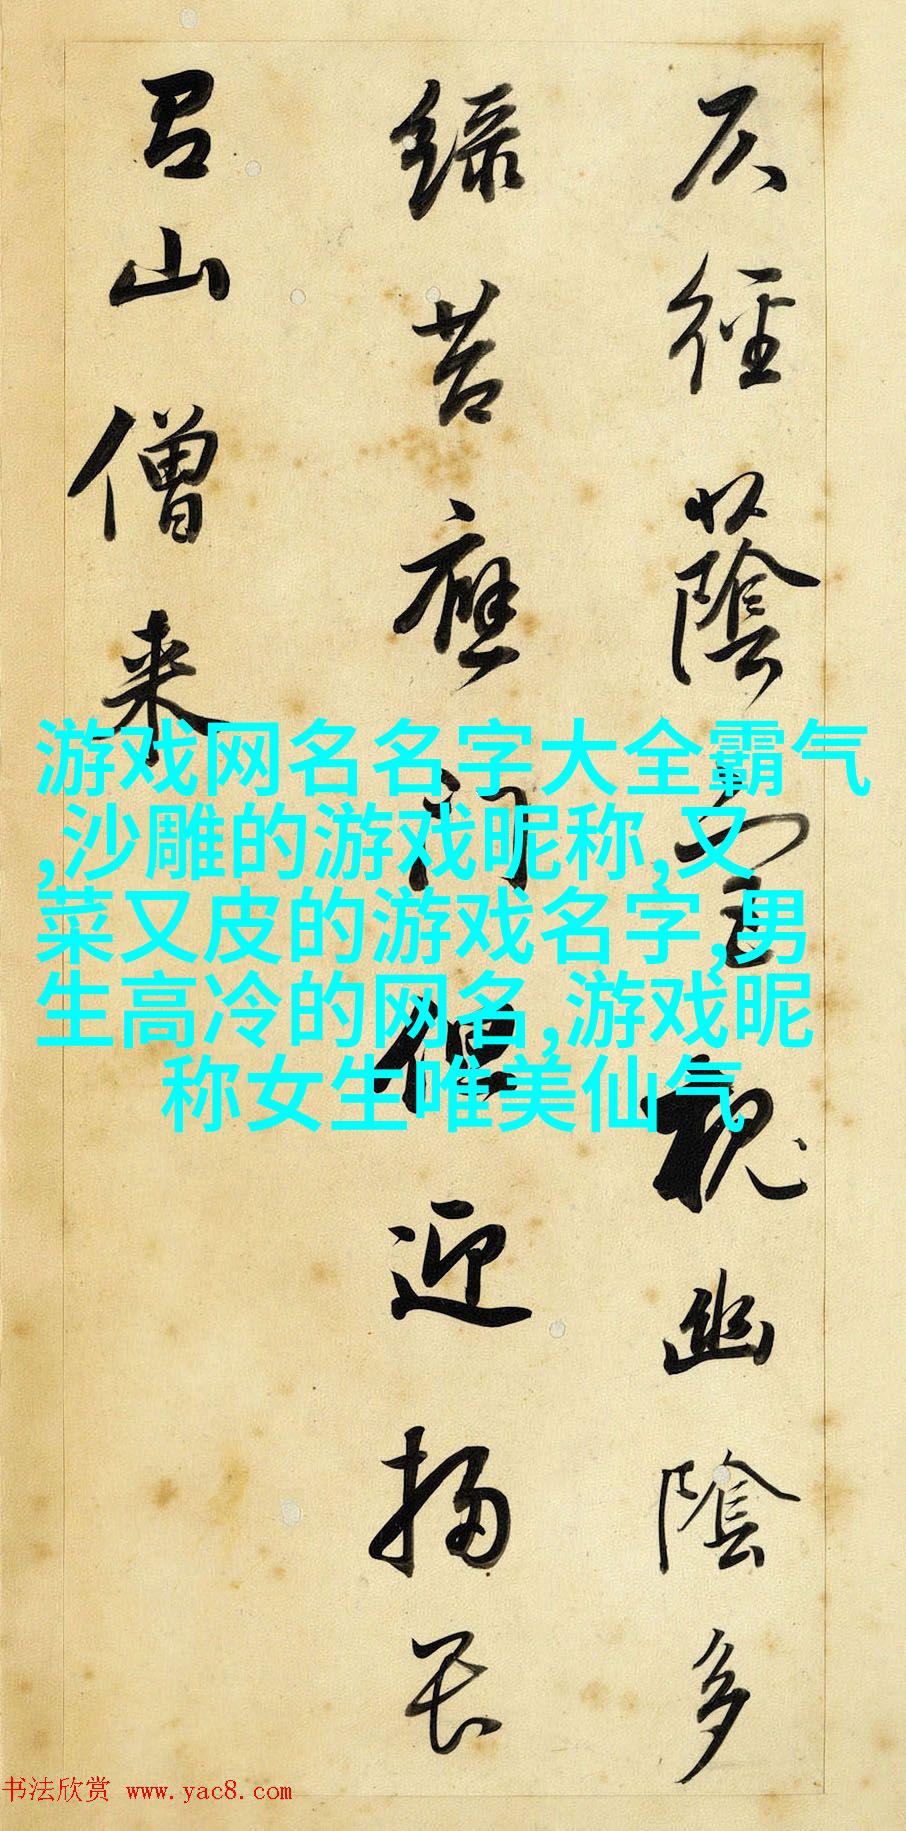 仄徑蔭宮槐幽陰多
綠苔應門但迎掃
山僧来
游戏网名名字大全霸气
,沙雕的游戏昵称,又
菜又皮的游戏名字,男
生高冷的网名,游戏昵
称女生唯美仙气
书法欣赏 www.yac8.com